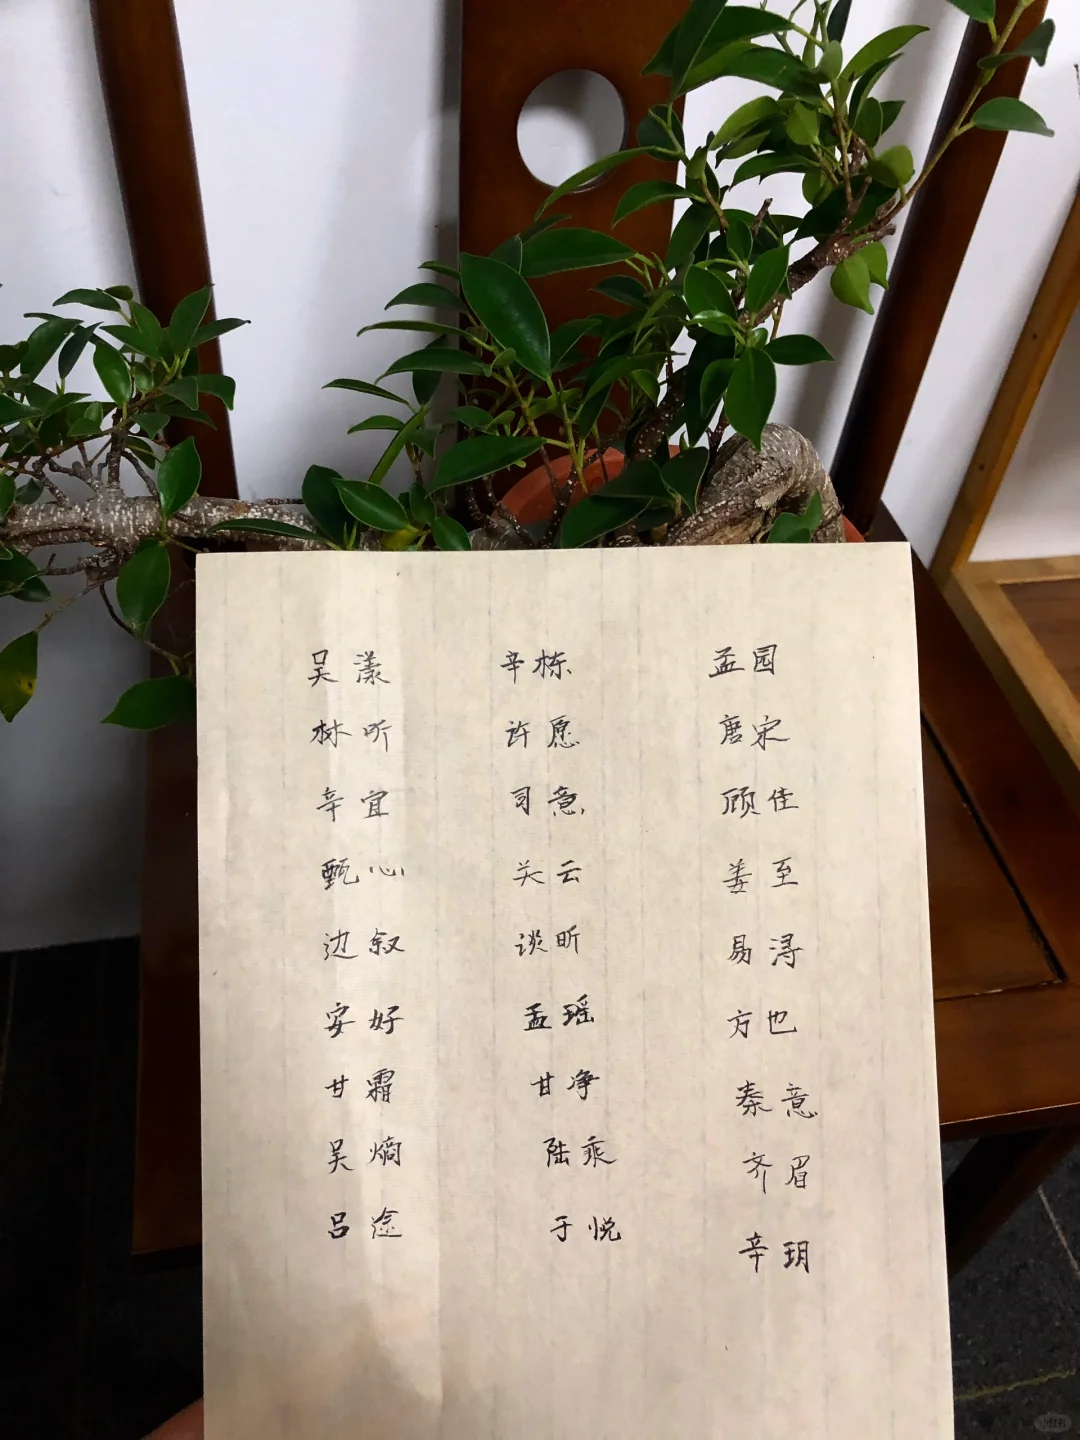 吴漾 辛栋 孟园
林听 许愿 唐宋
辛宜 司意 顾佳
甄心 关云 姜至
边叙 谈昕 易浔
安好 孟瑶 方也
甘霜 甘净 秦意
吴熵 陆乘 齐眉
吕途 于悦 辛玥
小红书